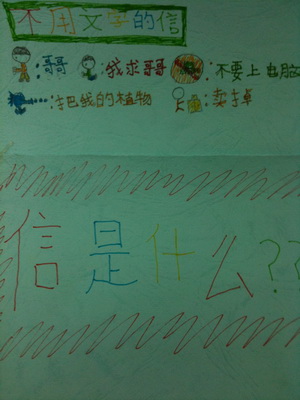 不用文字的信
:哥哥 :我求哥哥 :不要上电脑
:把我的植物 :卖掉
信是什么??